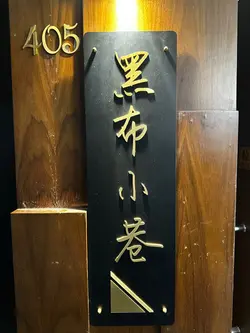 405
黑布小巷